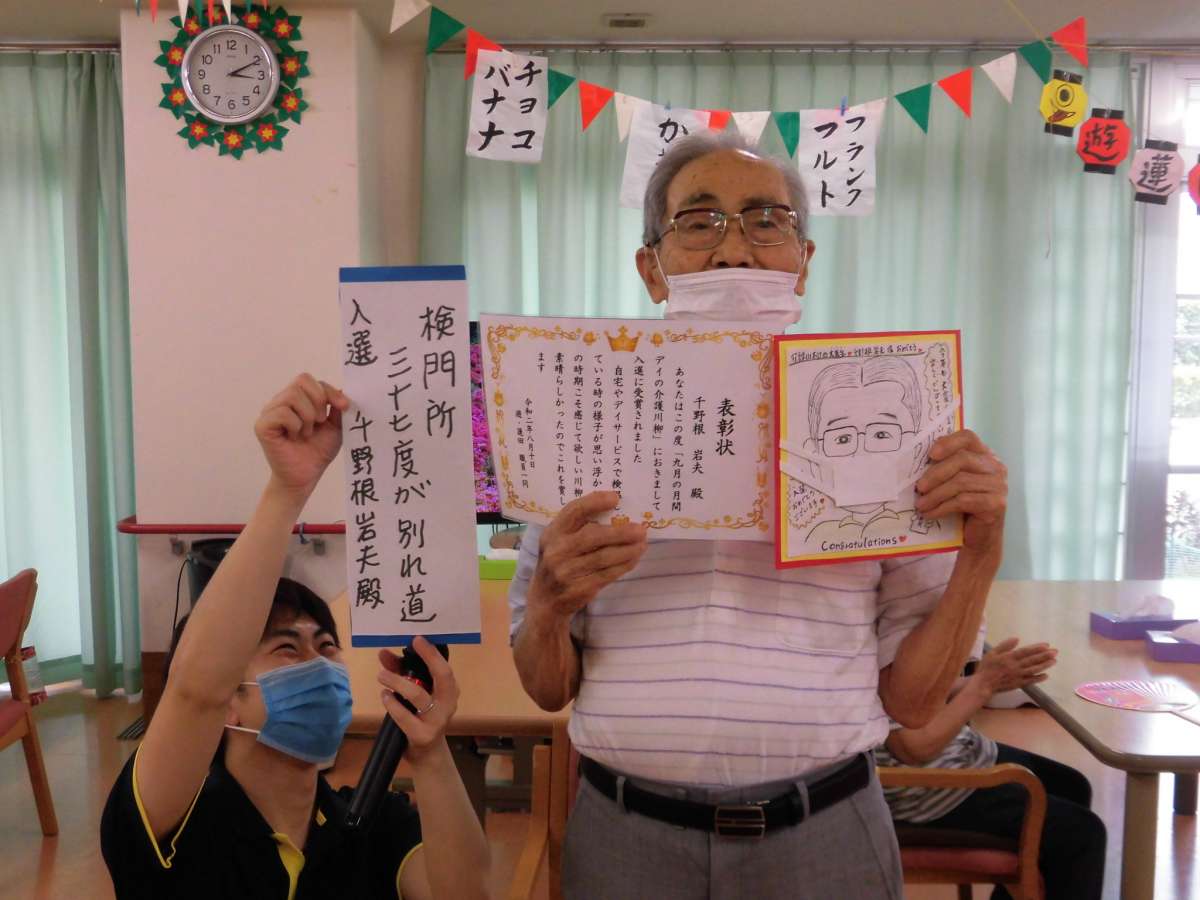 チョコ
バナナ
か
フランク
フルト
遊
蓮
12
1
2
3
4
5
6
7
8
9
10
11
検門所
三十七度が別れ道
入選 千野根岩夫殿
表彰状
千野根 岩夫 殿
あなたはこの度「九月の月間
デイの介護川柳」におきまして
入選に受賞されました
自宅やデイサービスで検
ている時の様子が思い浮か
の時期こそ感じて欲しい川柳
素晴らしかったのでこれを賞し
ます
令和二年八月十日
遊・蓮田 職員一同
入選
おめでとう
ございます
Congratulations